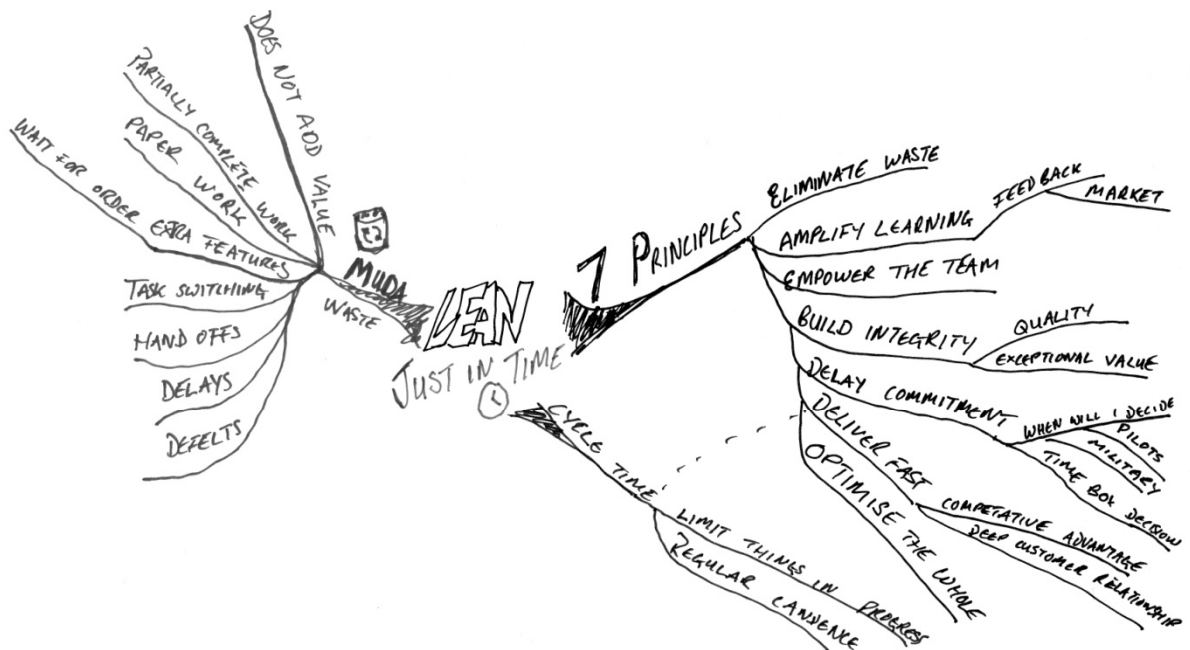 LEAN
JUST IN TIME
MUDA
WASTE
DOES NOT ADD VALUE
PARTIALLY COMPLETE WORK
PAPER WORK
EXTRA FEATURES
WAIT FOR ORDER
TASK SWITCHING
HAND OFFS
DELAYS
DEFELTS
7 PRINCIPLES
ELIMINATE WASTE
AMPLIFY LEARNING
FEEDBACK
MARKET
EMPOWER THE TEAM
BUILD INTEGRITY
QUALITY
EXCEPTIONAL VALUE
DELAY COMMITMENT
WHEN WILL I DECIDE
PILOTS
MILITARY
TIME BOX DECISION
DELIVER FAST
COMPETATIVE ADVANTAGE
DEEP CUSTOMER RELATIONSHIP
OPTIMISE THE WHOLE
CYCLE TIME
LIMIT THINGS IN PROGRESS
REGULAR CANDENCE